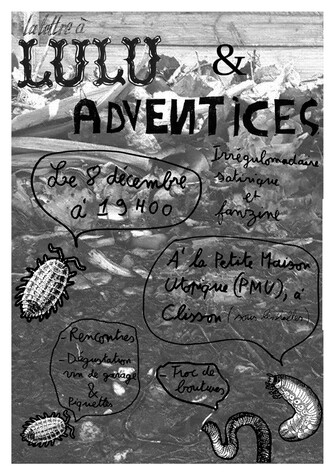 la lettre à
LULU &
ADVENTICES
Irrégulomadaire
satirique
et
fanzine
Le 8 décembre
à 19H00
A' la Petite Maison
Utopique (PMU), à
Clisson
- Rencontres
- Dégustation
vin de garage
&
Piquettes
- Troc de
boutures